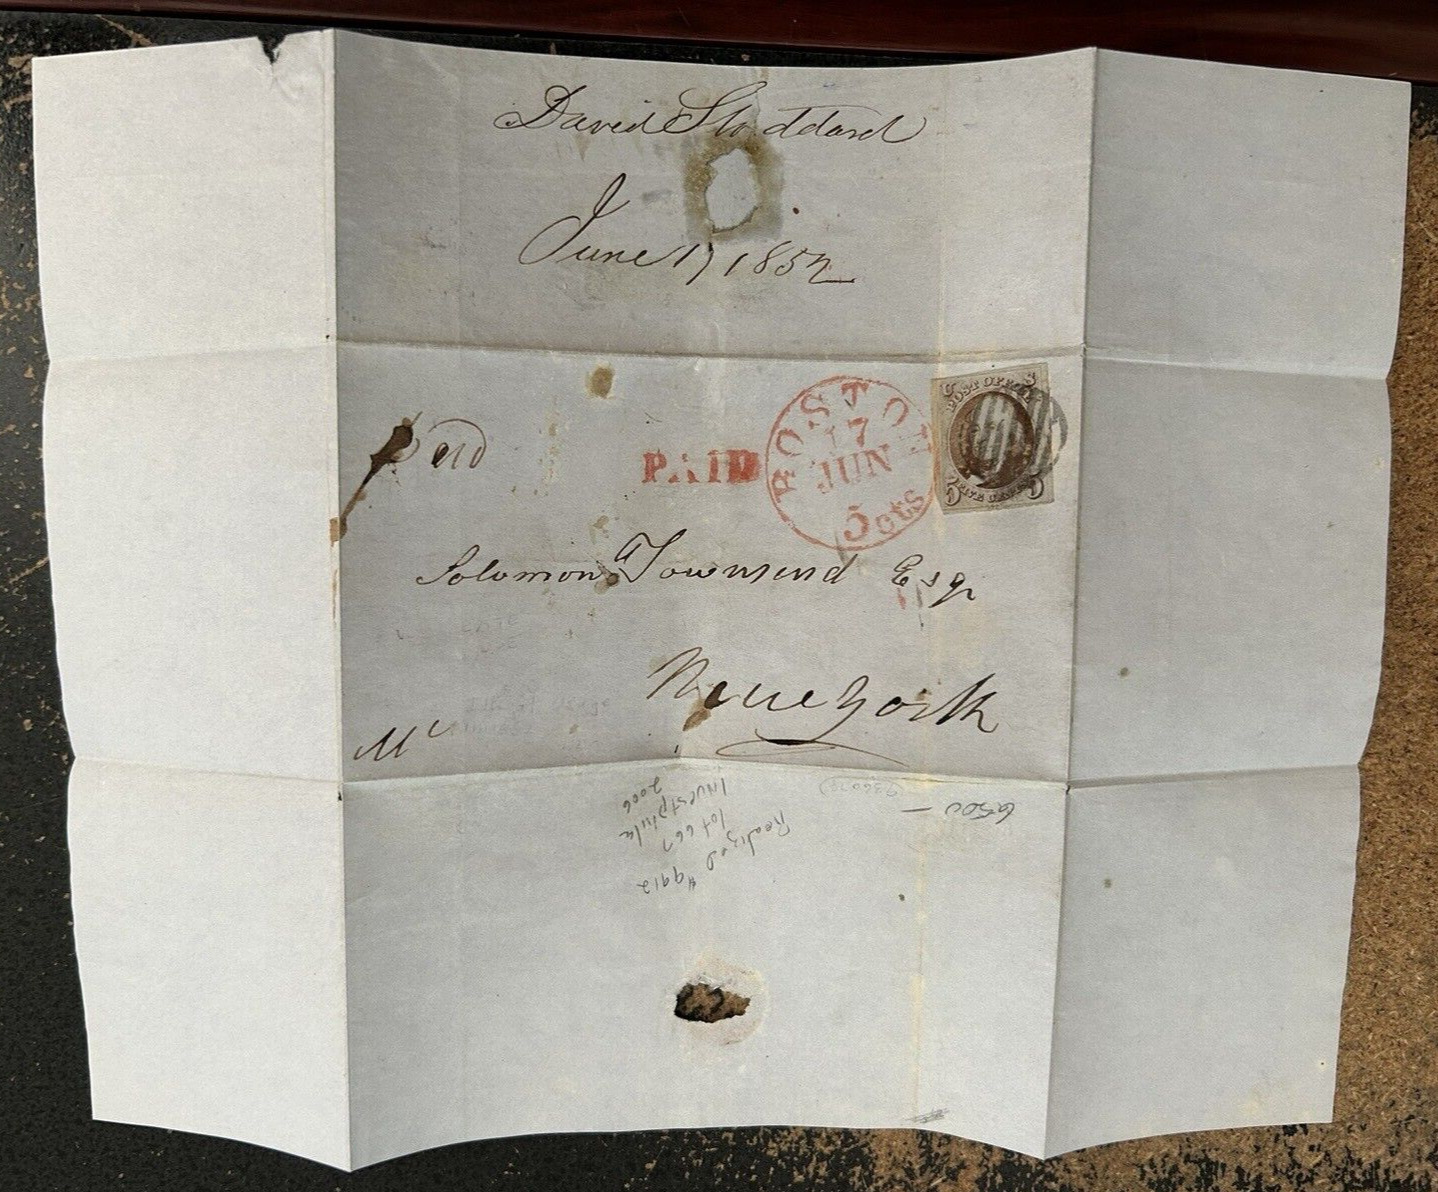 David Stoddard
June 17 1852
Paid
PAID
BOSTON
17
JUN
5 cts
U S
POST OFFICE
FIVE CENTS
5 5
Solomon Townsend Esqr
New York
6500 —
Realized $9912
lot 667
Investphila
2006